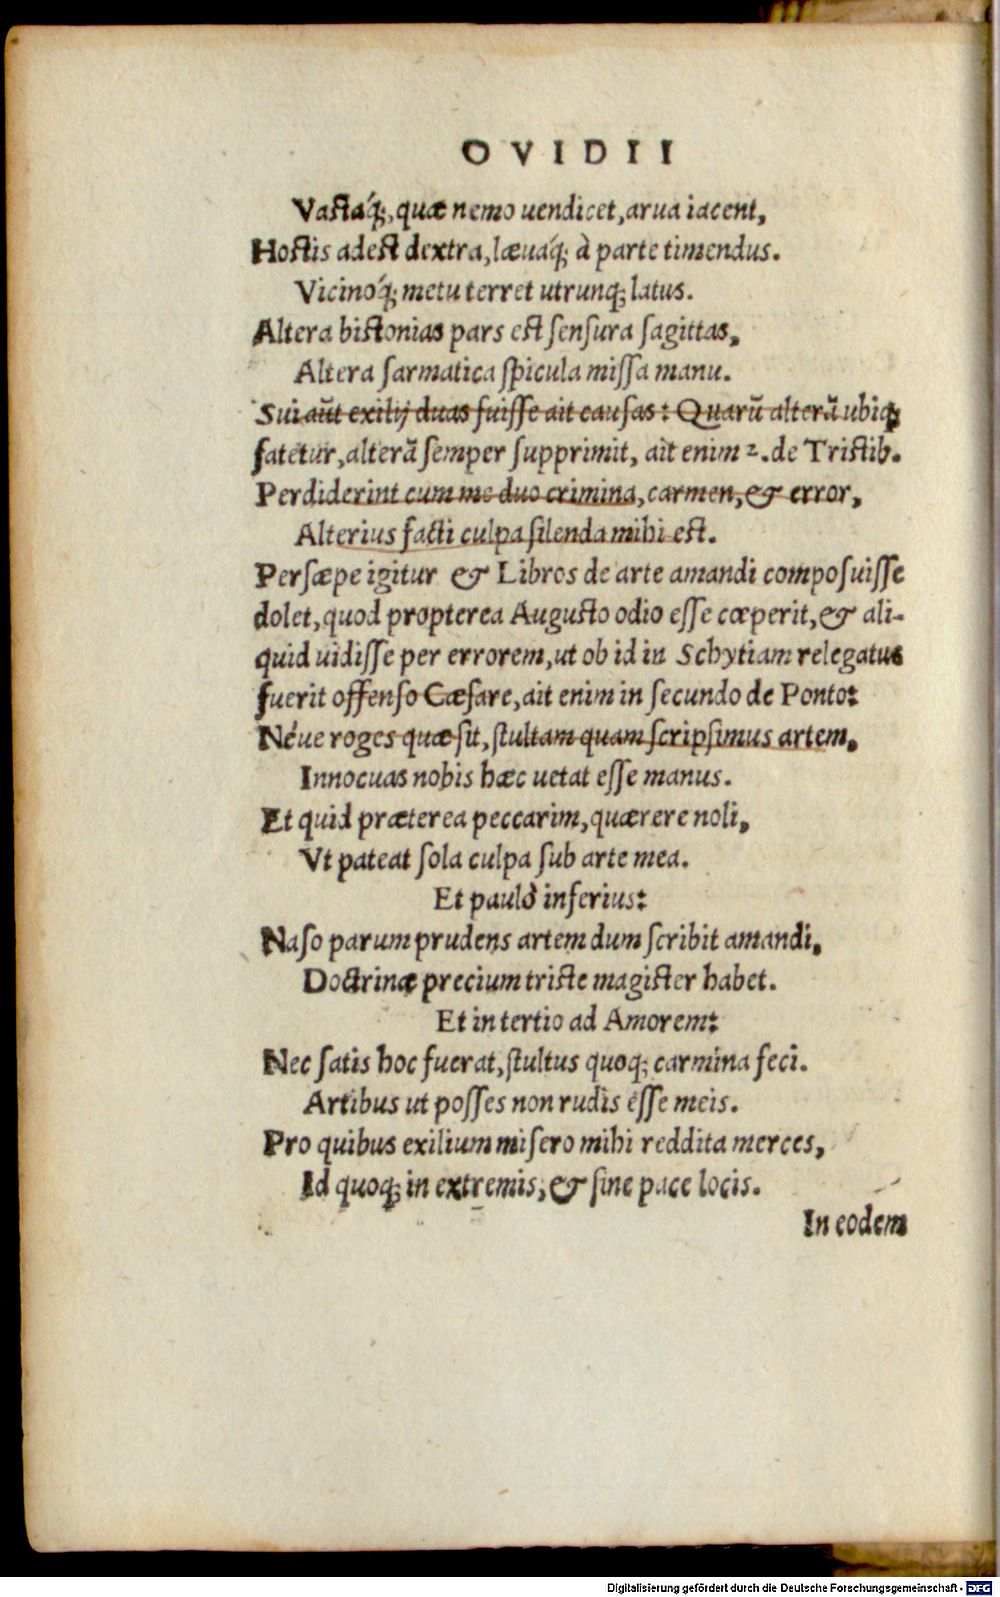 OVIDII
Vastaq́;, quæ nemo uendicet, arua iacent,
Hostis adest dextra, læuaq́; à parte timendus.
Vicinoq́; metu terret utrunq; latus.
Altera bistonias pars est sensura sagittas,
Altera sarmatica spicula missa manu.
Sui aūt exilij duas fuisse ait causas: Quarū alterā ubiq;
fatetur, alterā semper supprimit, ait enim 2. de Tristib.
Perdiderint cum me duo crimina, carmen, & error,
Alterius facti culpa silenda mihi est.
Persæpe igitur & Libros de arte amandi composuisse
dolet, quod propterea Augusto odio esse cœperit, & ali-
quid uidisse per errorem, ut ob id in Schytiam relegatus
fuerit offenso Cæsare, ait enim in secundo de Ponto:
Néue roges quæ sit, stultam quam scripsimus artem,
Innocuas nobis hæc uetat esse manus.
Et quid præterea peccarim, quærere noli,
Vt pateat sola culpa sub arte mea.
Et paulò inferius:
Naso parum prudens artem dum scribit amandi,
Doctrinæ precium triste magister habet.
Et in tertio ad Amorem:
Nec satis hoc fuerat, stultus quoq; carmina feci.
Artibus ut posses non rudis esse meis.
Pro quibus exilium misero mihi reddita merces,
Id quoq; in extremis, & sine pace locis.
In eodem
Digitalisierung gefördert durch die Deutsche Forschungsgemeinschaft - DFG